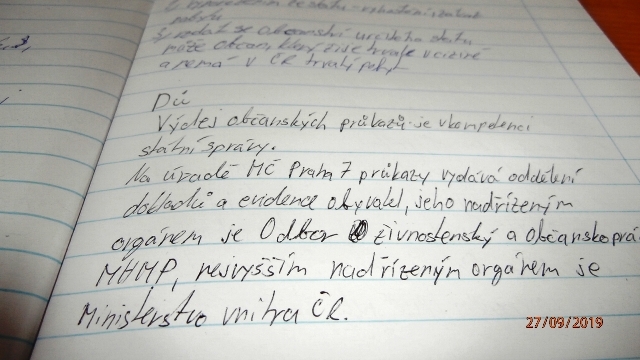 vzdát se občanství určitého státu
může občan, který žije trvale v cizině
a nemá v ČR trvalý pobyt
DÚ
Výdej občanských průkazů je v kompetenci
státní správy.
Na úřadě MČ Praha 7 průkazy vydává oddělení
dokladů a evidence obyvatel, jeho nadřízeným
orgánem je Odbor živnostenský a občanskoprá
MHMP, nejvyšším nadřízeným orgánem je
Ministerstvo vnitra ČR.
27/09/2019